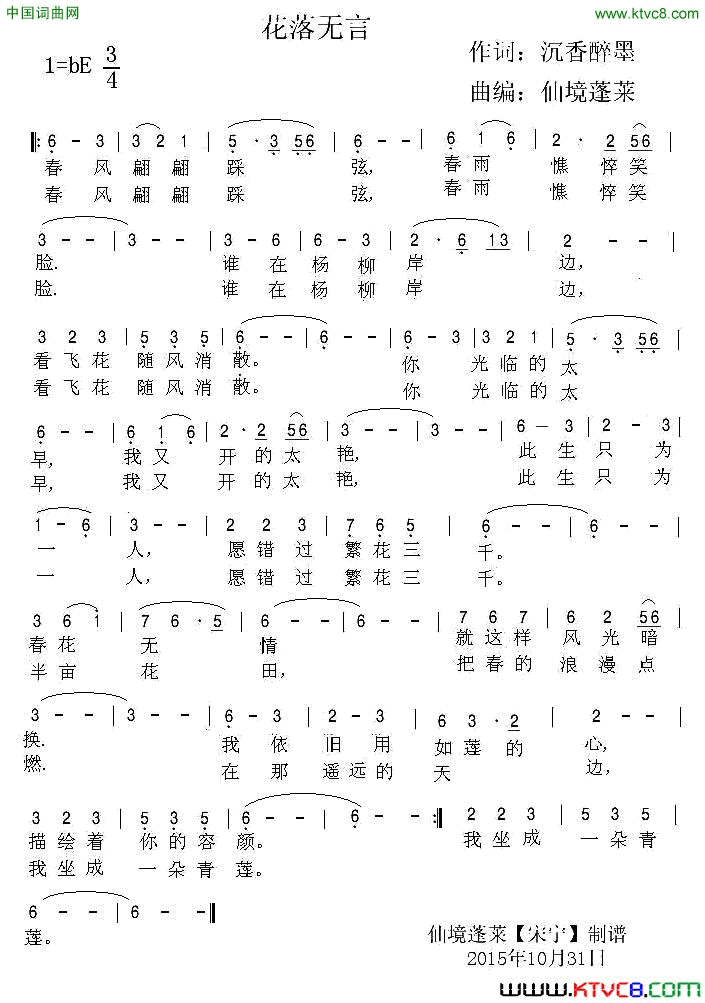 中国词曲网
www.ktvc8.com
花落无言
1=bE 3/4
作词：沉香醉墨
曲编：仙境蓬莱
6 - 3 | 3 2 1 | 5 · 3 56 | 6 - - | 6 1 6 | 2 · 2 56 |
春风翩翩踩弦,春雨憔悴笑
春风翩翩踩弦,春雨憔悴笑
3 - - | 3 - - | 3 - 3 | 6 - 3 | 2 · 6 13 | 2 - - |
脸.谁在杨柳岸边,
脸.谁在杨柳岸边,
3 2 3 | 5 3 5 | 6 - - | 6 - - | 6 - 3 | 3 2 1 | 5 · 3 56 |
看飞花随风消散。你光临的太
看飞花随风消散。你光临的太
6 - - | 6 1 6 | 2 · 2 56 | 3 - - | 3 - - | 6 - 3 | 2 - 3 |
早,我又开的太艳,此生只为
早,我又开的太艳,此生只为
1 - 6 | 3 - - | 2 2 3 | 7 6 5 | 6 - - | 6 - - |
一人,愿错过繁花三千。
一人,愿错过繁花三千。
3 6 1 | 7 6 · 5 | 6 - - | 6 - - | 7 6 7 | 6 2 56 |
春花无情就这样风光暗
半亩花田,把春的浪漫点
3 - - | 3 - - | 6 - 3 | 2 - 3 | 6 3 · 2 | 2 - - |
换.我依旧用如莲的心,
燃.在那遥远的天边,
3 2 3 | 5 3 5 | 6 - - | 6 - - :‖ 3 2 3 | 5 3 5 |
描绘着你的容颜。我坐成一朵青
我坐成一朵青莲。
6 - - | 6 - - ‖
莲。
仙境蓬莱【宋宁】制谱
2015年10月31日
www.KTVC8.com